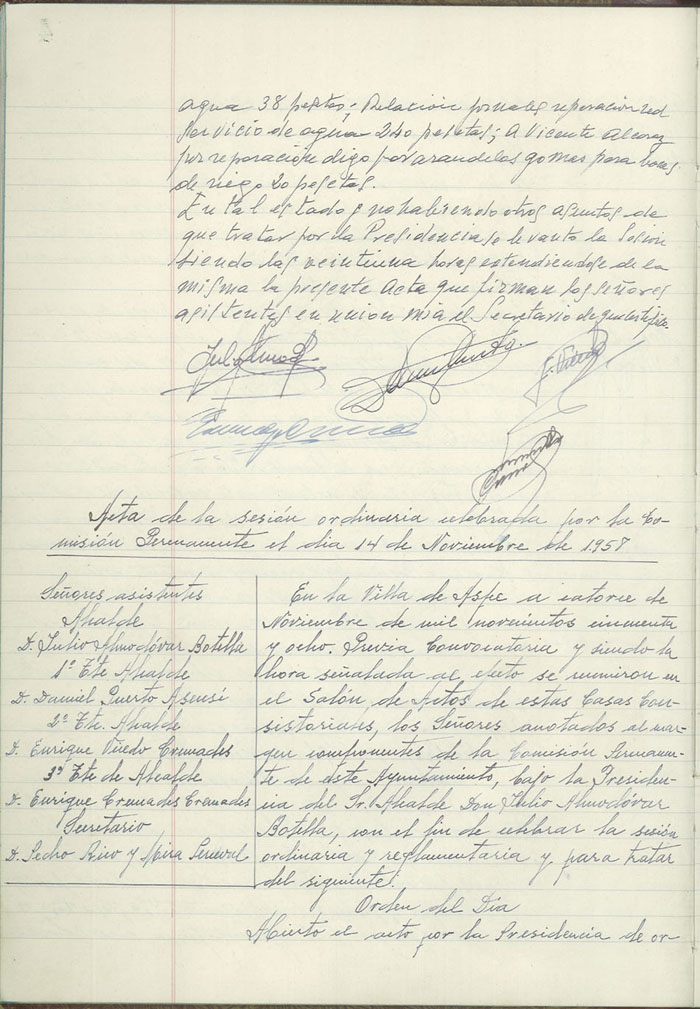 agua 38 pesetas; Relación jornales reparacion red
servicio de agua 240 pesetas; A Vicente Alcaraz
por reparación digo por arandelas gomas para bocas
de riego 20 pesetas.
En tal estado y no habiendo otros asuntos de
que tratar por la Presidencia se levanto la Sesion
siendo las veintiuna horas extendiendose de la
misma la presente Acta que firman los señores
asistentes en union mia el Secretario de que certifico.
Acta de la sesión ordinaria celebrada por la Co-
misión Permanente el dia 14 de Noviembre de 1.958
Señores asistentes
Alcalde
D. Julio Almodóvar Botella
1º Tte Alcalde
D. Daniel Puerto Asensi
2º Tte. Alcalde
D. Enrique Viñedo Cremades
3º Tte de Alcalde
D. Enrique Cremades Cremades
Secretario
D. Pedro Rico y Mira Perceval
En la Villa de Aspe a catorce de
Noviembre de mil novecientos cincuenta
y ocho. Previa Convocatoria y siendo la
hora señalada al efecto se reunieron en
el Salón de Actos de estas Casas Con-
sistoriales, los Señores anotados al mar-
gen componentes de la Comisión Permanen-
te de este Ayuntamiento, bajo la Presiden-
cia del Sr. Alcalde Don Julio Almodóvar
Botella, con el fin de celebrar la sesión
ordinaria y reglamentaria y para tratar
del siguiente:
Orden del Día
Abierto el acto por la Presidencia de or-